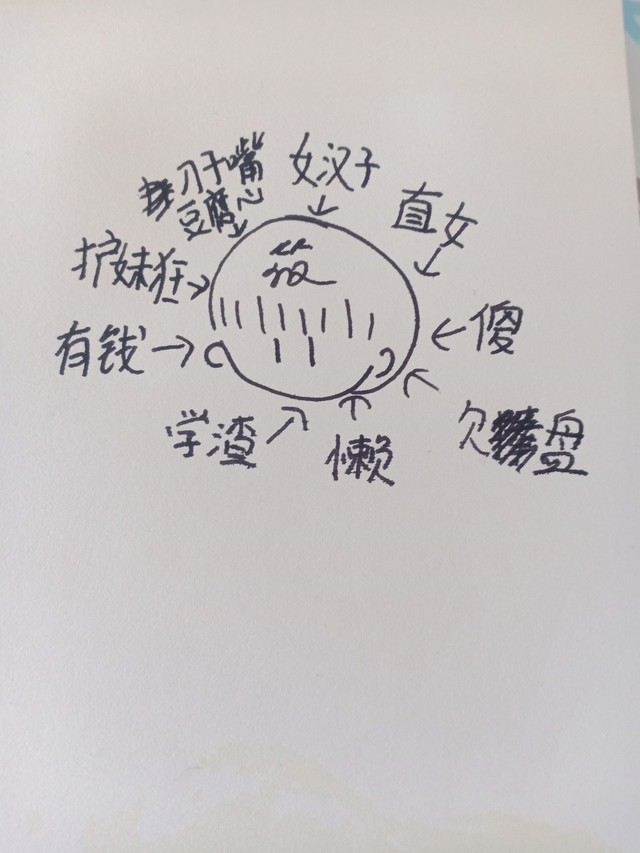 女汉子
刀子嘴
豆腐心
直女
护妹狂
筱
有钱
傻
学渣
懒
欠
盘